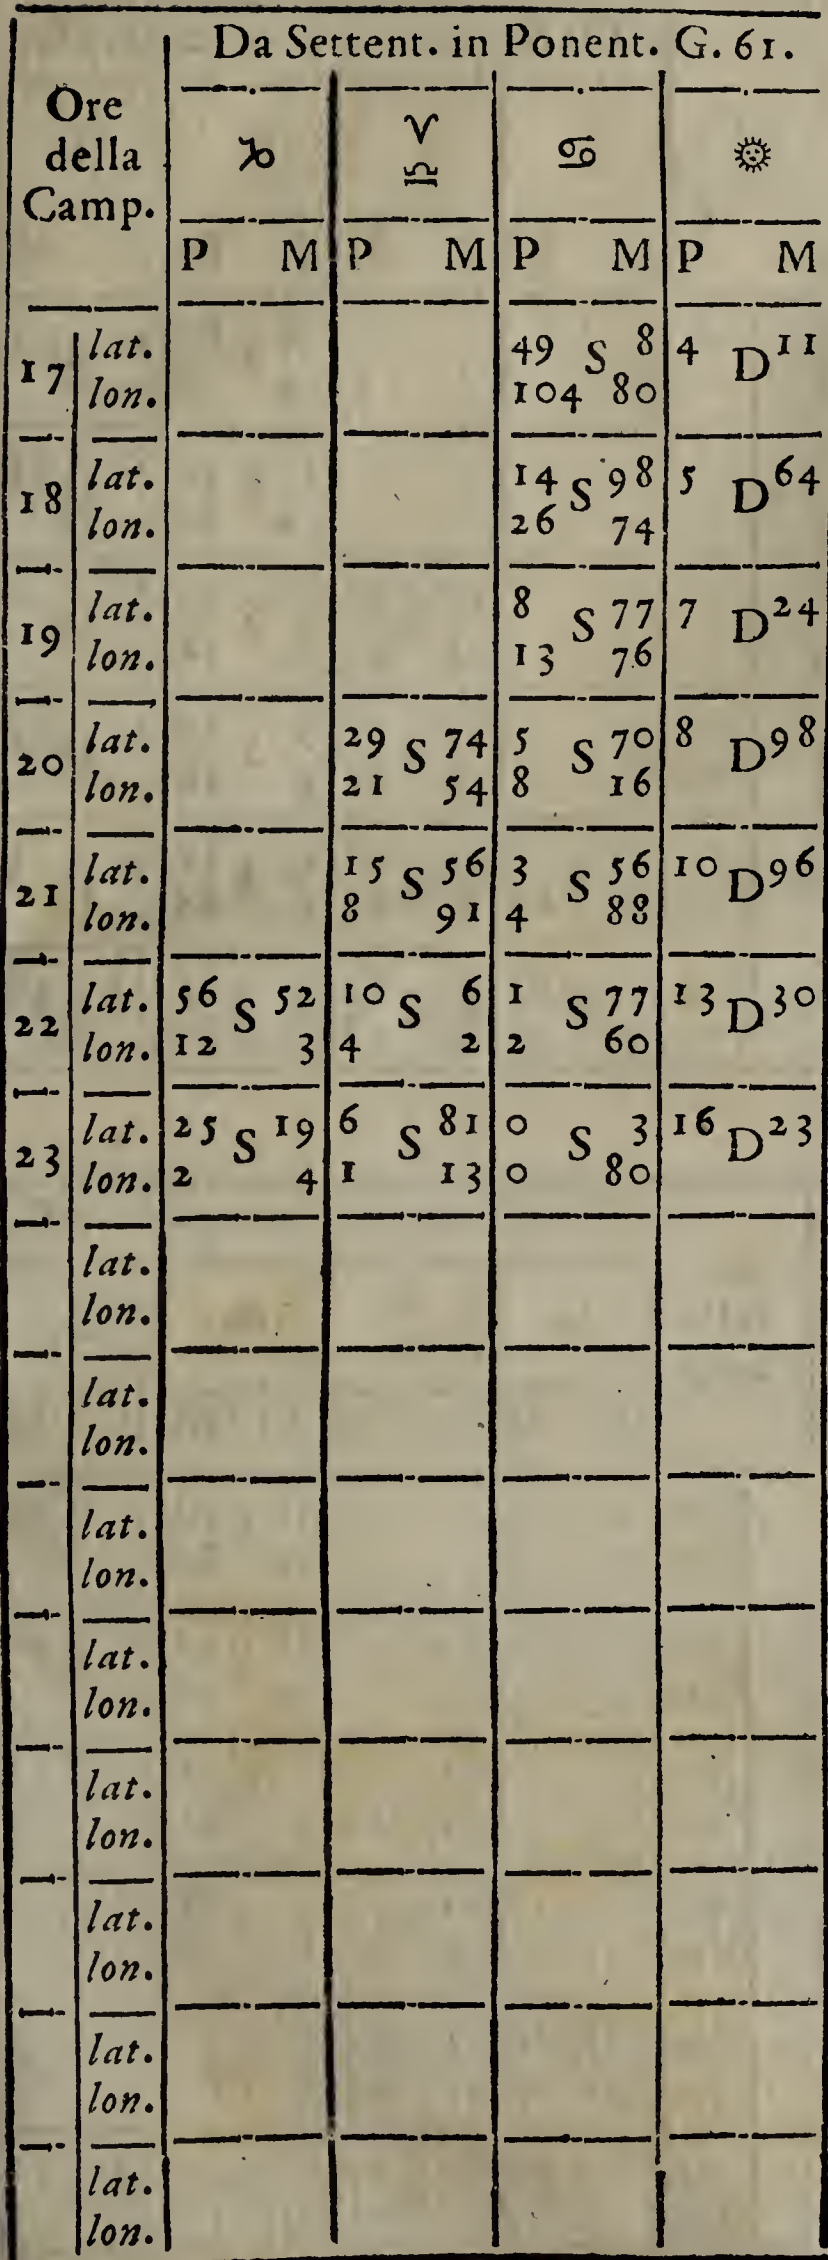 Da Settent. in Ponent. G. 61.
Ore della Camp. ♑ ♈ ♎ ♋ ☼
P M P M P M P M
17 lat. 49 S 8 4 D 11
lon. 104 80
18 lat. 14 S 98 5 D 64
lon. 26 74
19 lat. 8 S 77 7 D 24
lon. 13 76
20 lat. 29 S 74 5 S 70 8 D 98
lon. 21 54 8 16
21 lat. 15 S 56 3 S 56 10 D 96
lon. 8 91 4 88
22 lat. 56 S 52 10 S 6 1 S 77 13 D 30
lon. 12 3 4 2 2 60
23 lat. 25 S 19 6 S 81 0 S 3 16 D 23
lon. 2 4 1 13 0 80
lat.
lon.
lat.
lon.
lat.
lon.
lat.
lon.
lat.
lon.
lat.
lon.
lat.
lon.
lat.
lon.